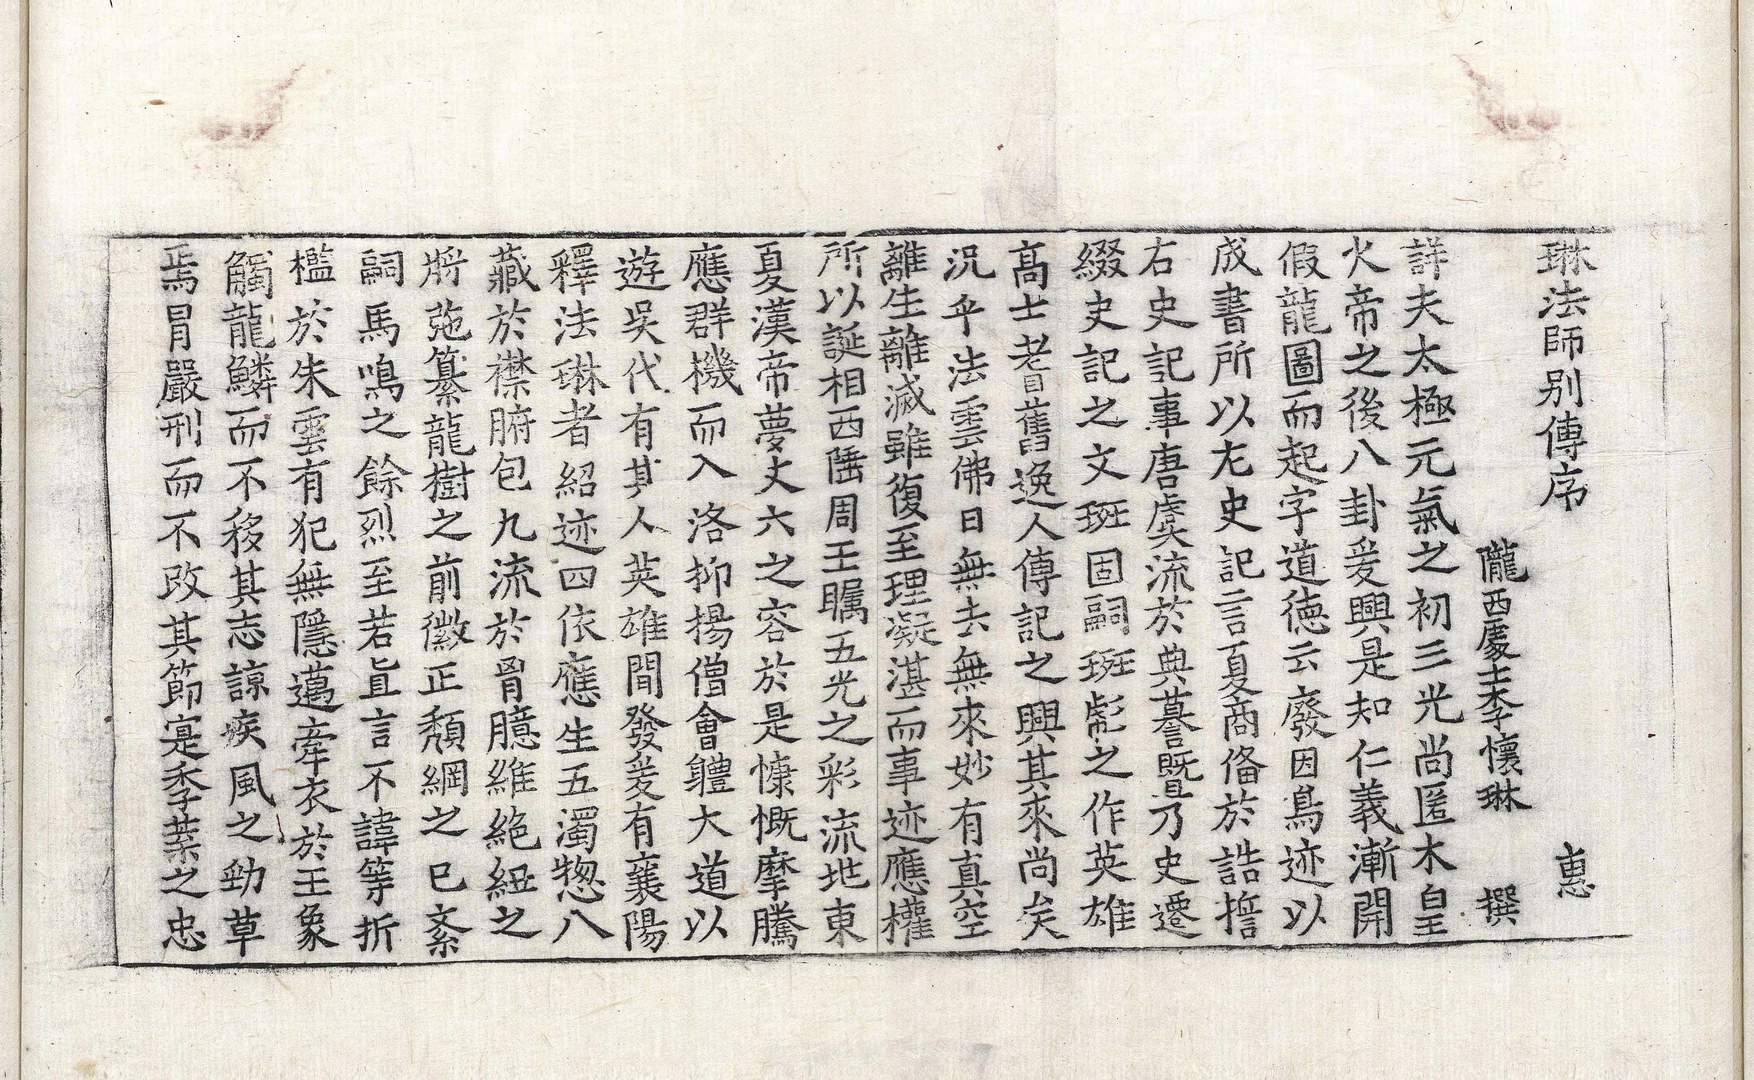 琳法師別傳序　惠
隴西處士李懷琳　撰
詳夫太極元氣之初三光尚匿木皇
火帝之後八卦爰興是知仁義漸開
假龍圖而起字道德云廢因鳥迹以
成書所以尤史記言夏商俻於誥誓
右史記事唐虞流於典謩既曁乃史遷
綴史記之文班固嗣班彪之作英雄
高士耆舊逸人傳記之興其來尚矣
况乎法雲佛日無去無來妙有真空
離生離滅雖復至理凝湛而事迹應權
所以誕相西陲周王矚五光之彩流地東
夏漢帝夢丈六之容於是慷慨摩騰
應群機而入洛抑揚僧會軆大道以
遊吳代有其人英雄間發爰有襄陽
釋法琳者紹迹四依應生五濁惣八
藏於襟腑包九流於胷臆維絕紐之
將弛纂龍樹之前徽正頹綱之已紊
嗣馬鳴之餘烈至若直言不諱等折
檻於朱雲有犯無隱邁牽衣於王象
觸龍鱗而不移其志諒疾風之勁草
焉冐嚴刑而不改其節寔季葉之忠